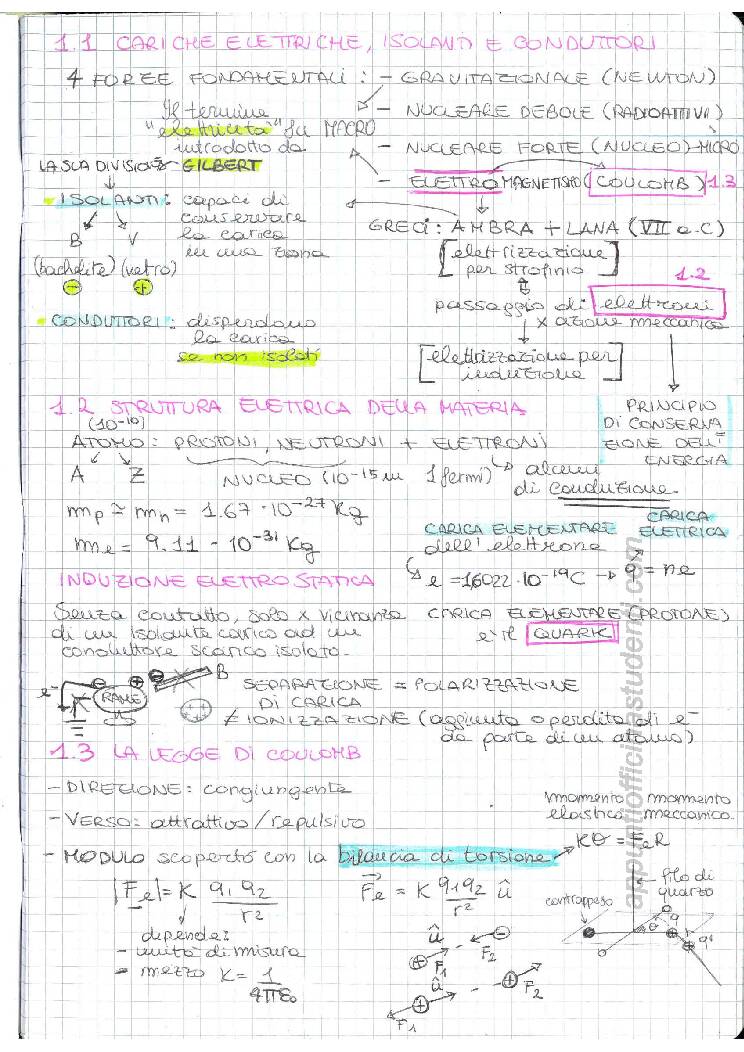 1.1 CARICHE ELETTRICHE, ISOLANTI E CONDUTTORI
4 FORZE FONDAMENTALI: - GRAVITAZIONALE (NEWTON)
- NUCLEARE DEBOLE (RADIOATTIVI)
- NUCLEARE FORTE (NUCLEO) - MICRO
- ELETTROMAGNETISMO (COULOMB) 1.3
MACRO
Il termine
"elettricità" fu
introdotto da
GILBERT
LA SUA DIVISIONE
ISOLANTI: capaci di
conservare
la carica
in una zona
B V
(bachelite) (vetro)
- +
CONDUTTORI: disperdono
la carica
se non isolati
GRECI: AMBRA + LANA (VII a.C)
[elettrizzazione
per strofinio]
1.2
passaggio di elettroni
x azione meccanica
[elettrizzazione per
induzione]
PRINCIPIO
DI CONSERVA
ZIONE DELL'
ENERGIA
CARICA
ELETTRICA
1.2 STRUTTURA ELETTRICA DELLA MATERIA
(10-10)
ATOMO: PROTONI, NEUTRONI + ELETTRONI
A Z NUCLEO (10-15 m 1 fermi) alcuni
di conduzione
mp ≃ mn = 1.67 · 10-27 Kg
me = 9.11 · 10-31 Kg
CARICA ELEMENTARE
dell'elettrone
e = 1,6022 · 10-19 C → q = ne
CARICA ELEMENTARE (PROTONE)
è il QUARK
INDUZIONE ELETTROSTATICA
Senza contatto, solo x vicinanza
di un isolante carico ad un
conduttore scarico isolato.
e- RAME B
SEPARAZIONE = POLARIZZAZIONE
DI CARICA
≠ IONIZZAZIONE (aggiunta o perdita di e-
da parte di un atomo)
1.3 LA LEGGE DI COULOMB
- DIREZIONE: congiungente
- VERSO: attrattivo / repulsivo
- MODULO scoperto con la bilancia di torsione
momento momento
elastico meccanico
Kθ = FeR
|Fe| = K q1 q2 / r2
Fe = K q1 q2 / r2 û
dipende:
- unità di misura
- mezzo K = 1 / 4πε0
û
F1 F2
û
F1 F2
filo di
quarzo
contrappeso
θ q
q'
appuntiofficinastudenti.com